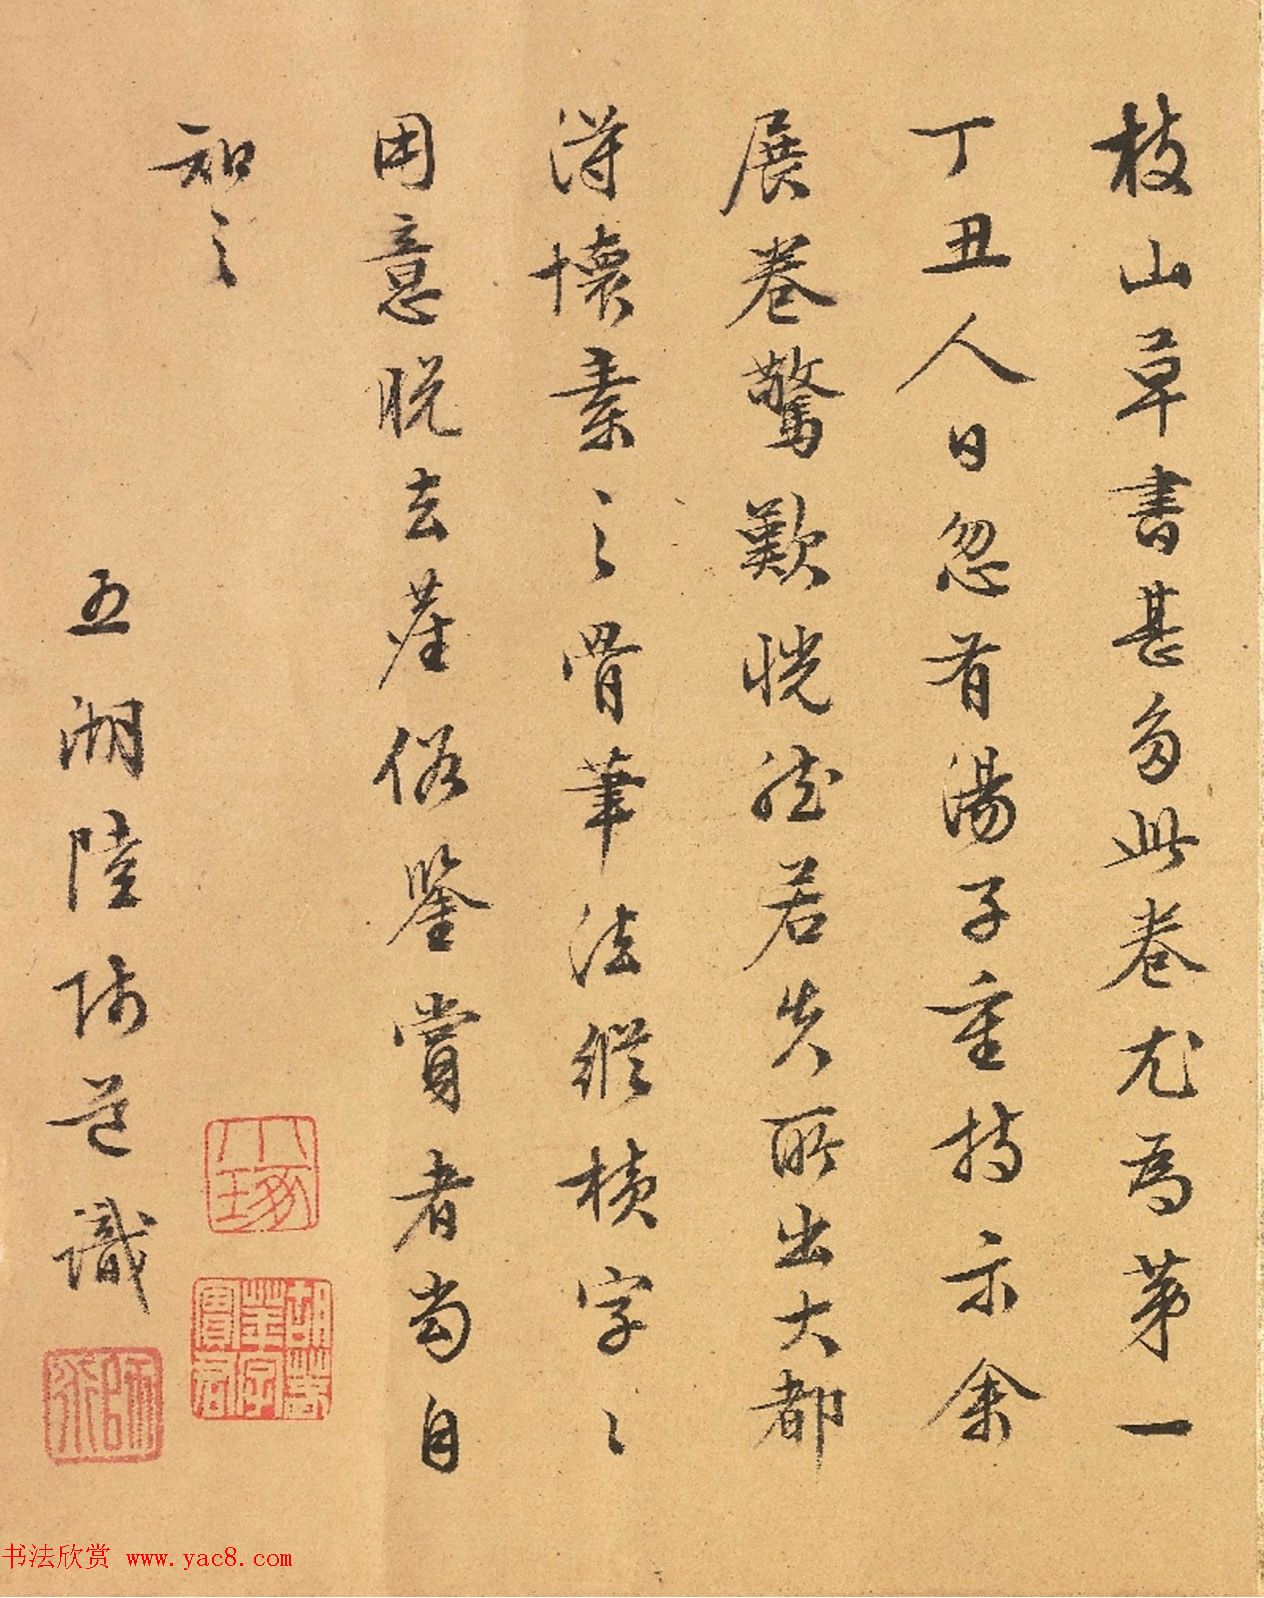 枝山草書甚多此卷尤為第一
丁丑人日忽有湯子重持示余
展卷驚歎恍然若失所出大都
得懷素之骨筆法縱橫字〻
用意脱去塵俗鑒賞者當自
知之
五湖陸師道識
書法欣赏 www.yac8.com